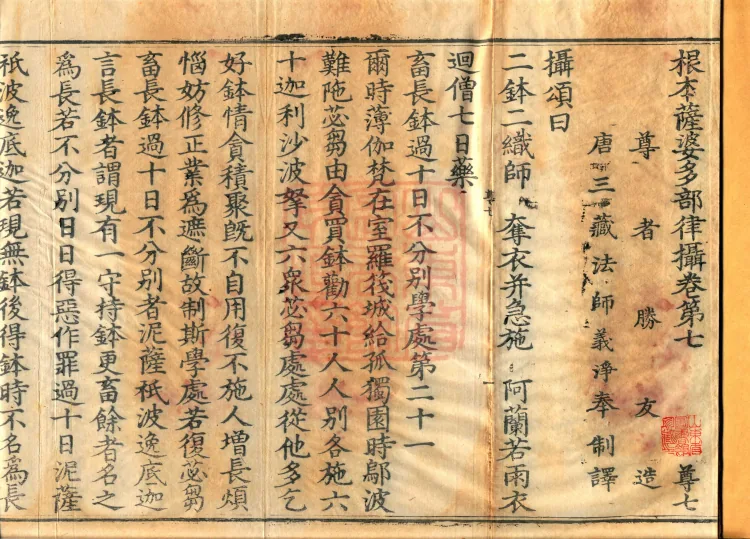 根本薩婆多部律攝卷第七　尊七
尊者勝友造
唐三藏法師義淨奉制譯
攝頌曰
二鉢二織師　奪衣并急施　阿蘭若雨衣
迴僧七日藥
畜長鉢過十日不分別學處第二十一
爾時薄伽梵在室羅筏城給孤獨園時鄔波
難陁苾芻由貪買鉢勸六十人人別各施六
十迦利沙波拏又六衆苾芻處處從他多乞
好鉢情貪積聚旣不自用復不施人增長煩
惱妨修正業爲遮斷故制斯學處若復苾芻
畜長鉢過十日不分別者泥薩祇波逸底迦
言長鉢者謂現有一守持鉢更畜餘者名之
爲長若不分別日日得惡作罪過十日泥薩
祇波逸底迦若現無鉢後得鉢時不名爲長